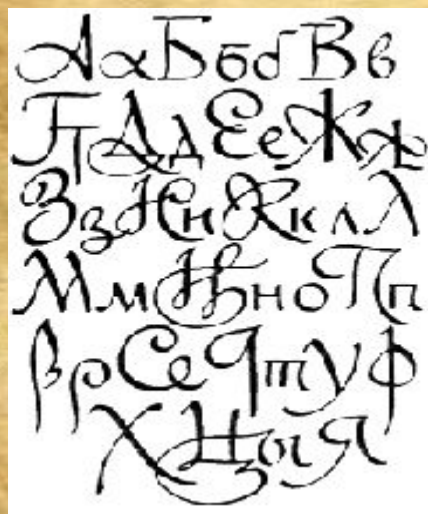 Аа Бб б Вв
Гт Дд Ее Жж
Зз Ии Кк л Л
Мм Нно Пп
Рр Се Чт у ф
Х Ц ы я